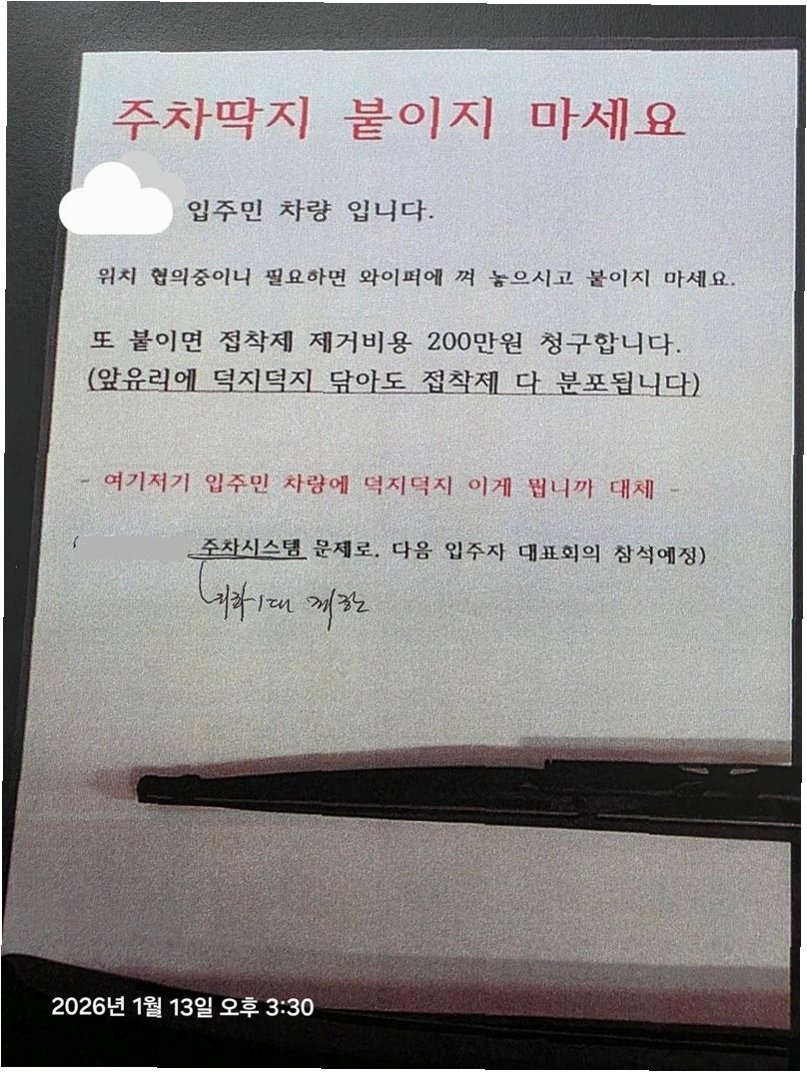 주차딱지 붙이지 마세요
입주민 차량 입니다.
위치 협의중이니 필요하면 와이퍼에 껴 놓으시고 붙이지 마세요.
또 붙이면 접착제 제거비용 200만원 청구합니다.
(앞유리에 덕지덕지 닦아도 접착제 다 분포됩니다)
- 여기저기 입주민 차량에 덕지덕지 이게 뭡니까 대체 -
주차시스템 문제로. 다음 입주자 대표회의 참석예정)
2026년 1월 13일 오후 3:30